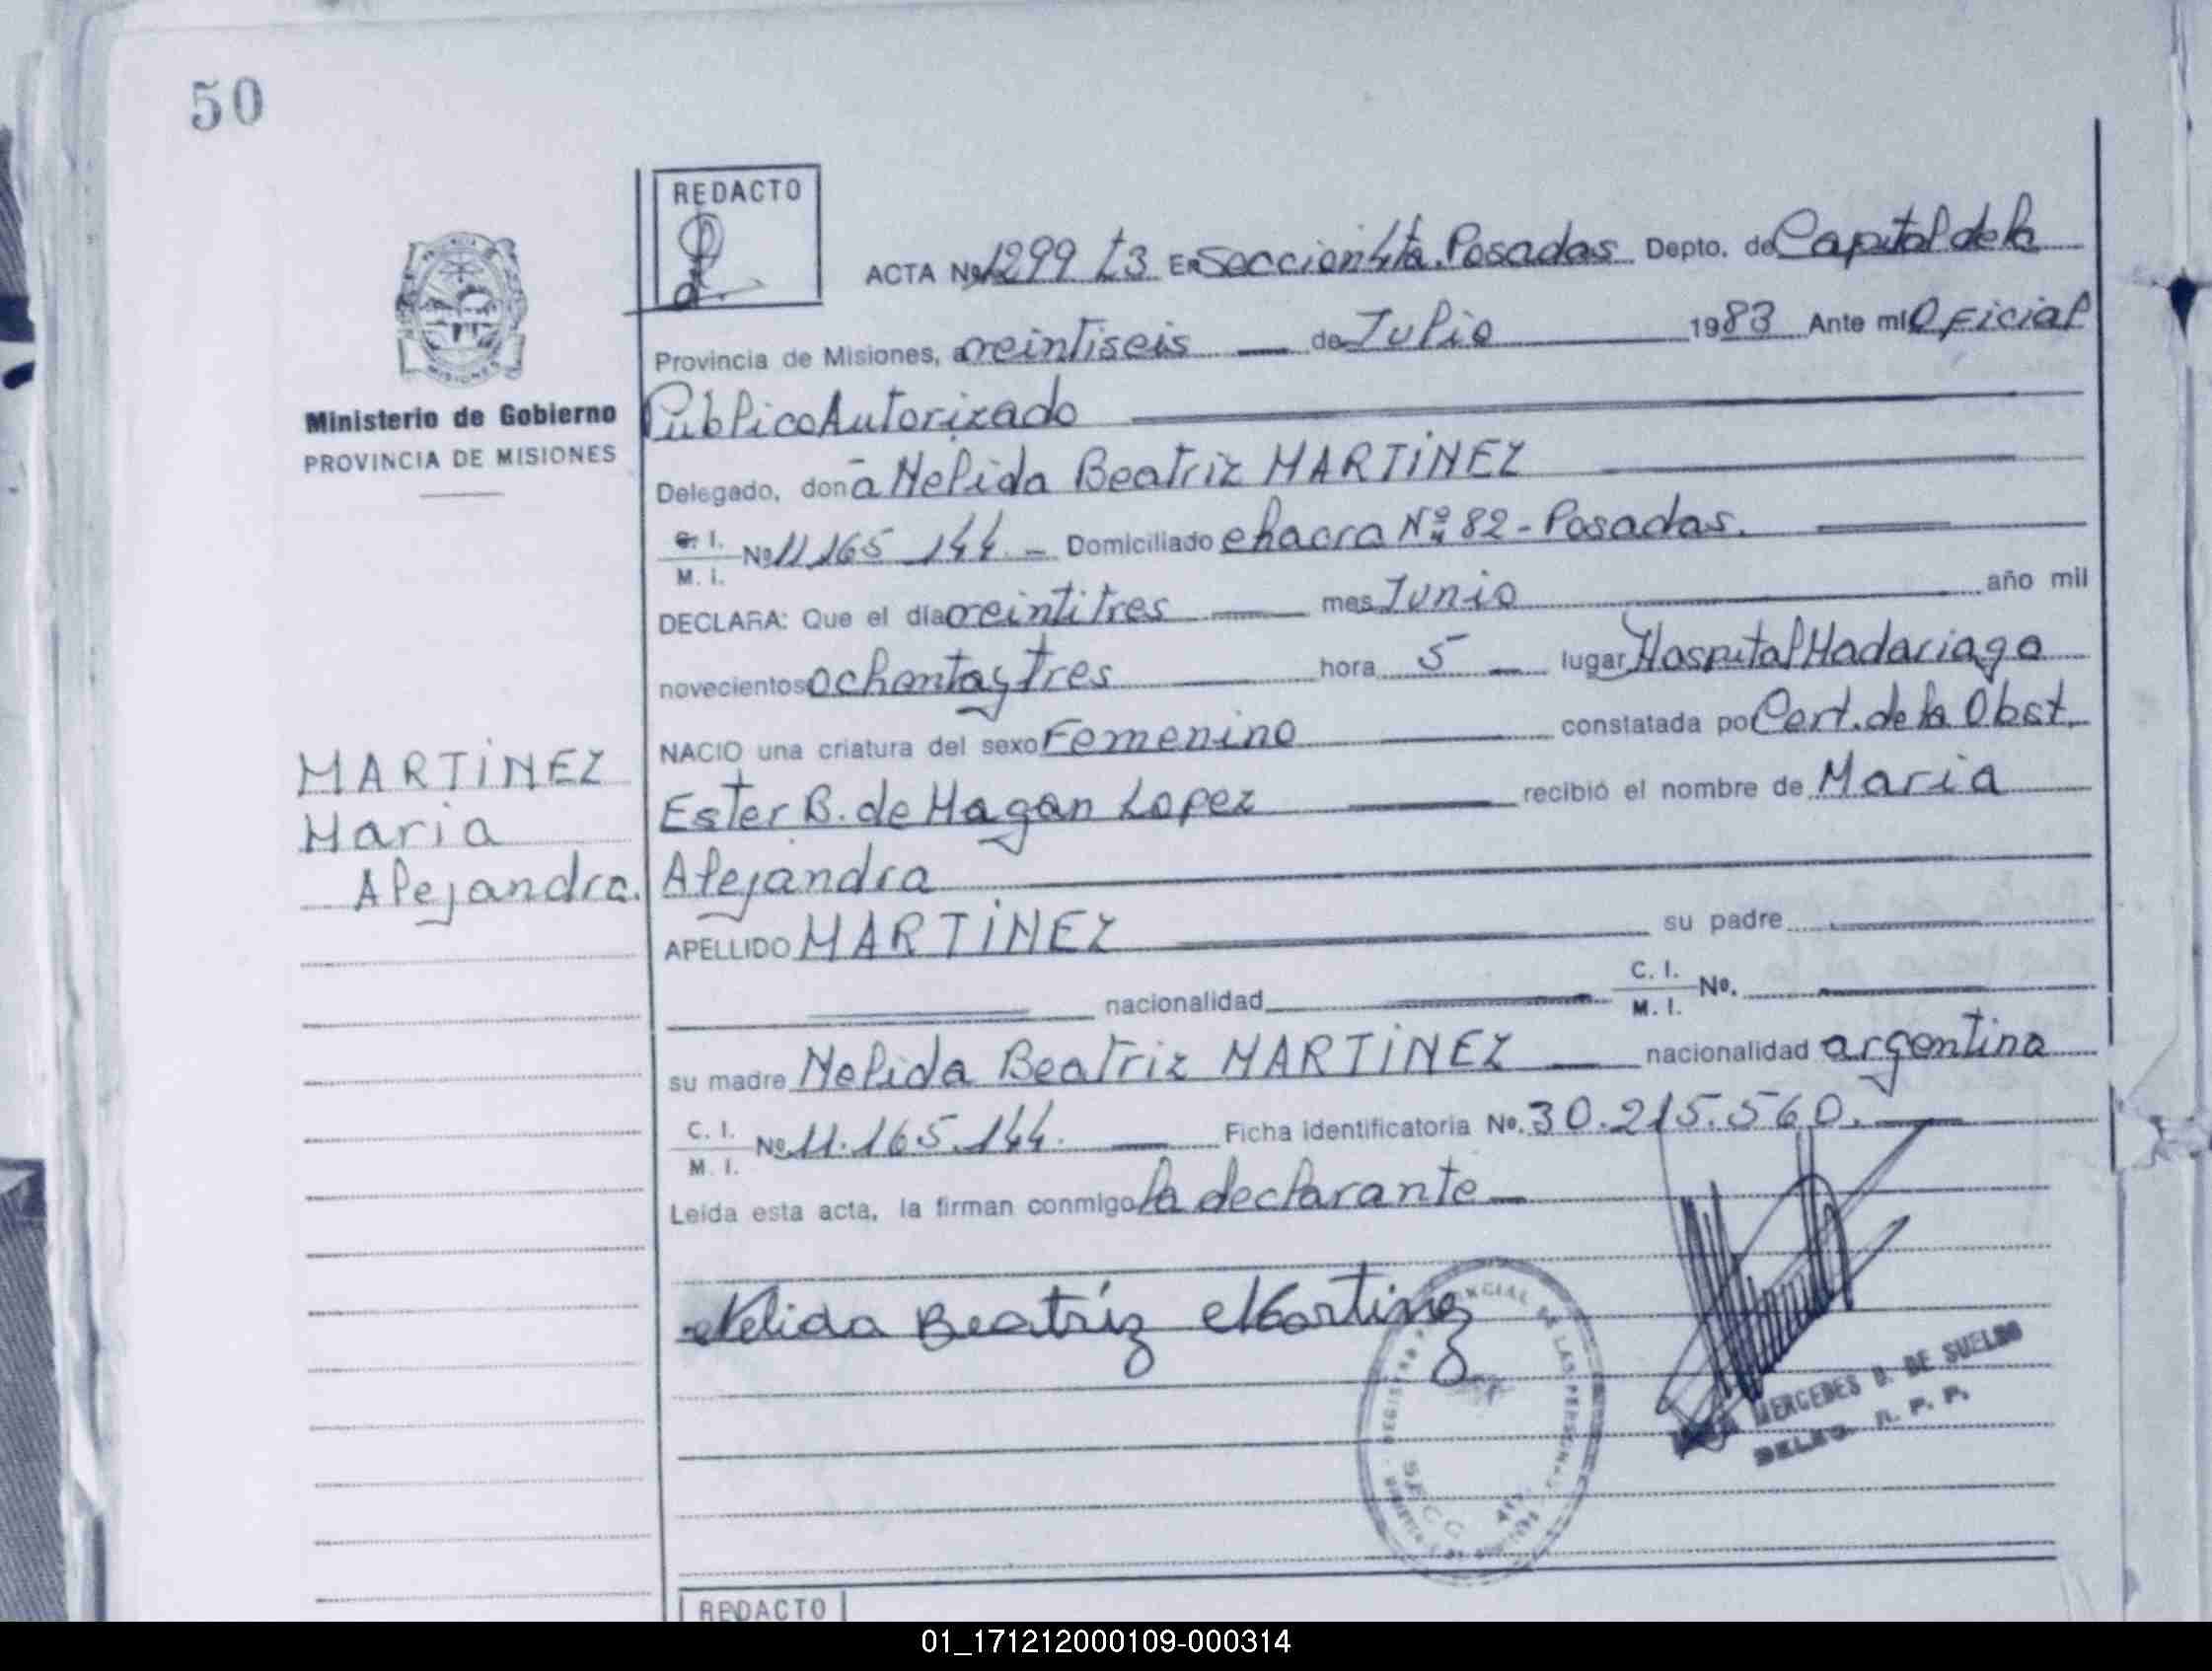 50
REDACTO
ACTA Nº 1299 t3 En Seccion 4ta. Posadas Depto. de Capital de la
Provincia de Misiones, a veintiseis de Julio 1983 Ante mi Oficial
Publico Autorizado
Ministerio de Gobierno
PROVINCIA DE MISIONES
Delegado, doña Nelida Beatriz MARTINEZ
C. I.
M. I. Nº 11.165.144 - Domiciliado chacra Nº 82 - Posadas.
DECLARA: Que el día veintitres mes Junio año mil
novecientos ochenta y tres hora 5 lugar Hospital Madariaga
NACIO una criatura del sexo Femenino constatada por Cert. de la Obst.
Ester B. de Magan Lopez recibió el nombre de Maria
Alejandra
MARTINEZ
Maria
Alejandra.
APELLIDO MARTINEZ su padre
nacionalidad C. I.
M. I. Nº.
su madre Nelida Beatriz MARTINEZ nacionalidad argentina
C. I.
M. I. Nº 11.165.144. Ficha identificatoria Nº. 30.215.560.
Leída esta acta, la firman conmigo la declarante
Nelida Beatriz Martinez
MERCEDES D. DE SUELDO
DELEG. R. P. P.
REDACTO
01_171212000109-000314